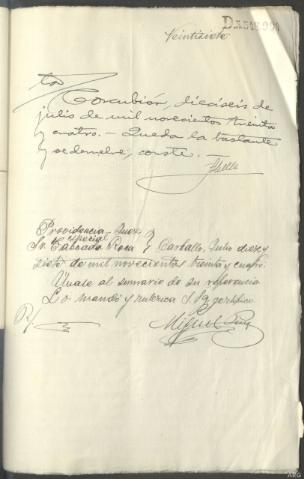 veintisiete
ta
Corcubión, dieciséis de
julio de mil novecientos treinta
y cuatro. - Queda la bastante
y se devuelve, conste. -
Providencia Juez
especial
Sr. Taboada Roca } Carballo, Julio diez y
siete de mil novecientos treinta y cuatro.
Únase al sumario de su referencia
Lo mandó y rubrica S Sª certifico
R/ Miguel